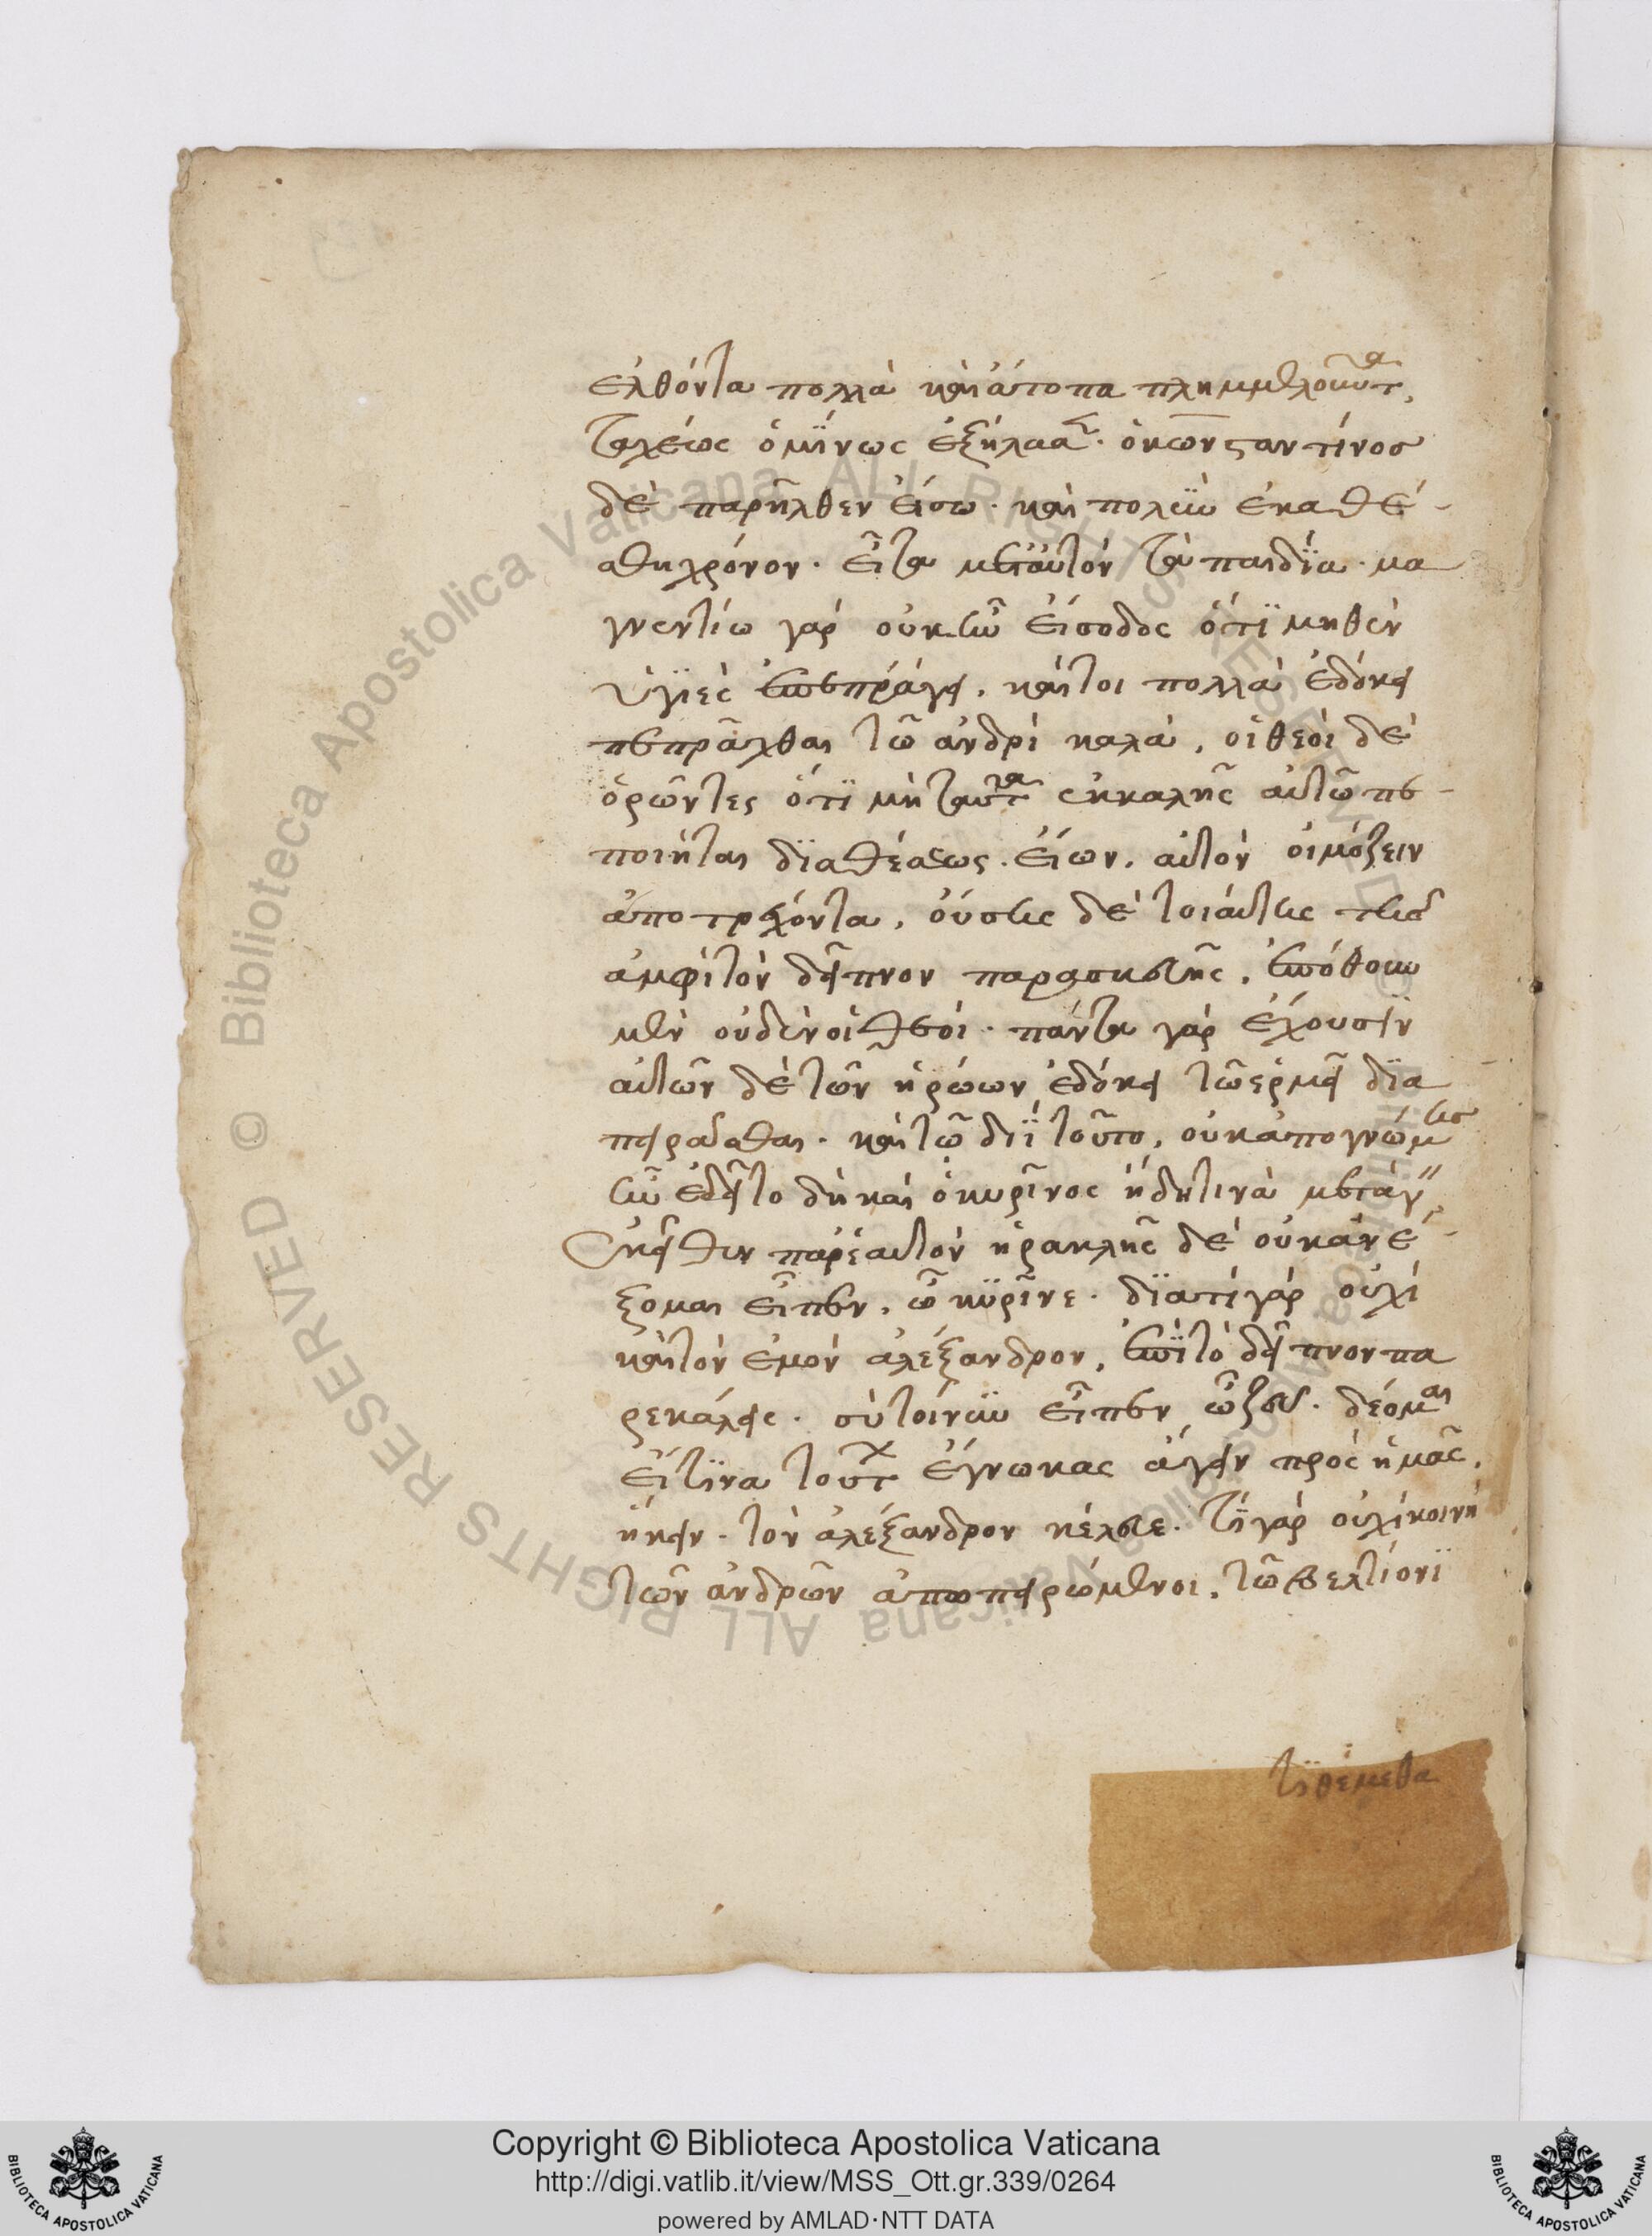 ελθόντα πολλὰ καὶ ἄτοπα πλημμελοῦντα,
ταχέως ὁ μίνως ἐξήλασε. ὁ κωνσταντίνος
δὲ παρῆλθεν εἴσω. καὶ πολὺν ἐκαθέ-
σθη χρόνον. εἶτα μετ' αὐτὸν τὰ παιδία. μα
γνεντίω γὰρ οὐκ ἦν εἴσοδος ὅτι μηθὲν
ὑγιὲς ἐπεπράγει. καίτοι πολλὰ ἐδόκει
πεπρᾶχθαι τῶ ἀνδρὶ καλὰ, οἱ θεοὶ δὲ
ὁρῶντες ὅτι μὴ ταῦτα ἐκ καλῆς αὐτῶ πε-
ποίηται διαθέσεως. εἴων. αὐτὸν οἰμώζειν
ἀποτρέχοντα, οὔσης δὲ τοιαύτης τῆς
ἀμφὶ τὸν δεῖπνον παρασκευῆς, ἐπόθουν
μὲν οὐδὲν οἱ θεοί. πάντα γὰρ ἔχουσιν
αὐτῶν δὲ τῶν ἡρώων ἐδόκει τῶ ἑρμεῖ δια
πειρᾶσθαι. καὶ τῶ διῒ τοῦτο, οὐκ ἀπὸ γνώμης
ἦν ἐδεῖτο δὴ καὶ ὁ κυρῖνος ἤδη τινὰ μετάγειν
ἐκεῖθεν παρ' ἑαυτὸν ἡρακλῆς δὲ οὐκ ἀνέ-
ξομαι εἶπεν, ὦ κυρῖνε. διατί γὰρ οὐχὶ
καὶ τὸν ἐμὸν ἀλέξανδρον, ἐπὶ τὸ δεῖπνον πα
ρεκάλεις. σὺ τοίνυν εἶπεν ὦ ζεῦ. δέομαι
εἴ τινα τούτων ἔγνωκας ἄγειν πρὸς ἡμᾶς,
ἥκειν. τὸν ἀλέξανδρον κέλευε. τί γὰρ οὐχὶ κοινῆ
τῶν ἀνδρῶν ἀποπειρώμενοι, τῶ βελτίονι
τιθέμεθα
Copyright © Biblioteca Apostolica Vaticana
http://digi.vatlib.it/view/MSS_Ott.gr.339/0264
powered by AMLAD·NTT DATA
BIBLIOTECA APOSTOLICA VATICANA
BIBLIOTECA APOSTOLICA VATICANA
© Biblioteca Apostolica Vaticana ALL RIGHTS RESERVED
© Biblioteca Apostolica Vaticana ALL RIGHTS RESERVED